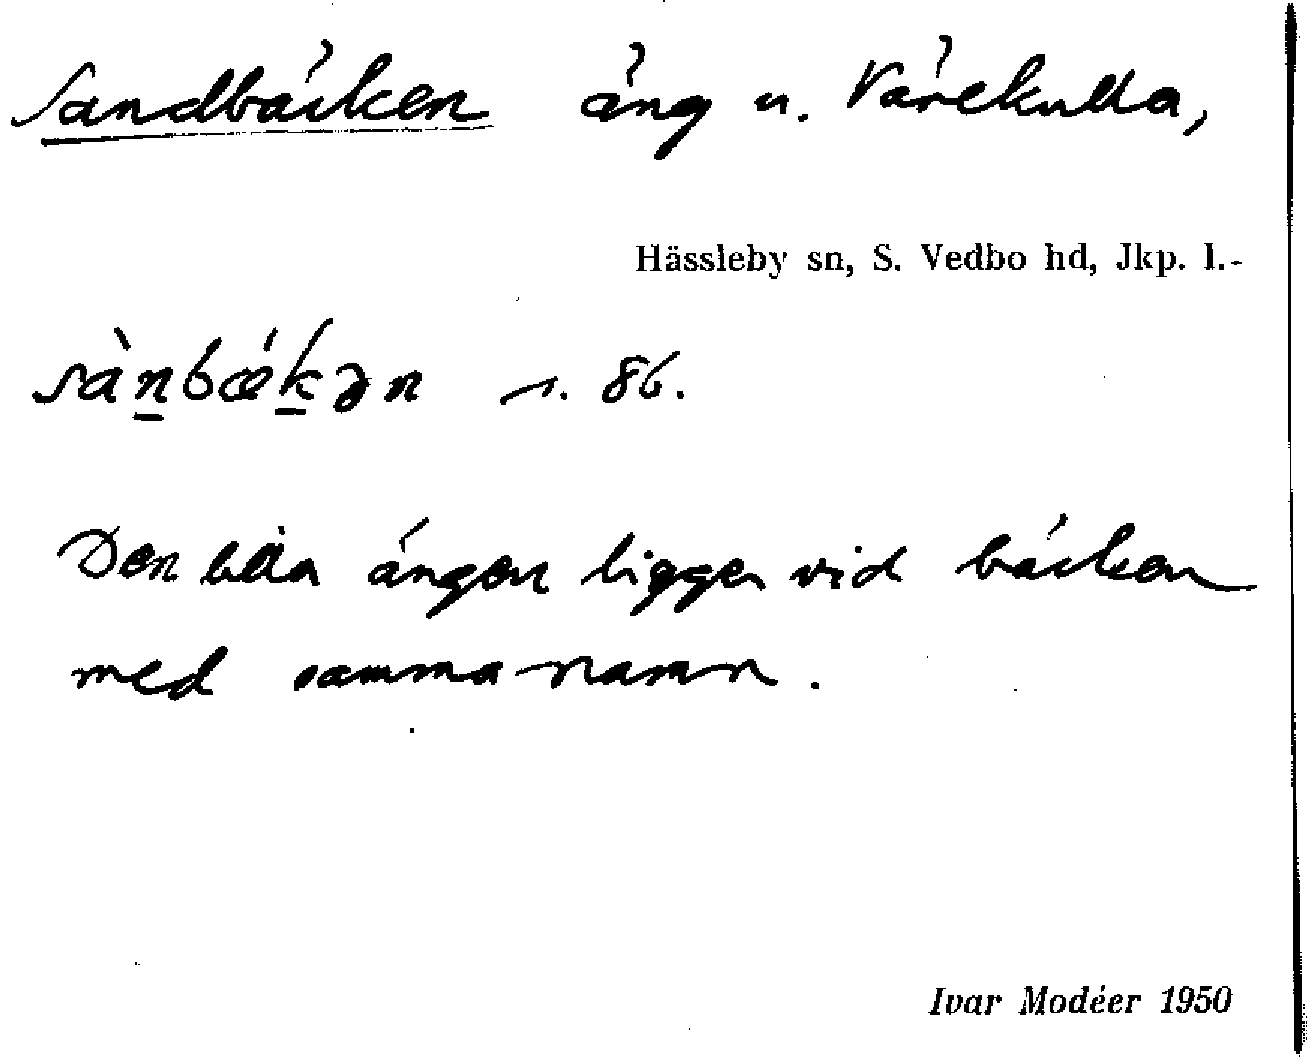 Sandbäcken äng u. Värekulla,
Hässleby sn, S. Vedbo hd, Jkp. l.-
sàn̲bǽk̲ən s. 86.
Den lilla ängen ligger vid bäcken
med samma namn.
Ivar Modéer 1950